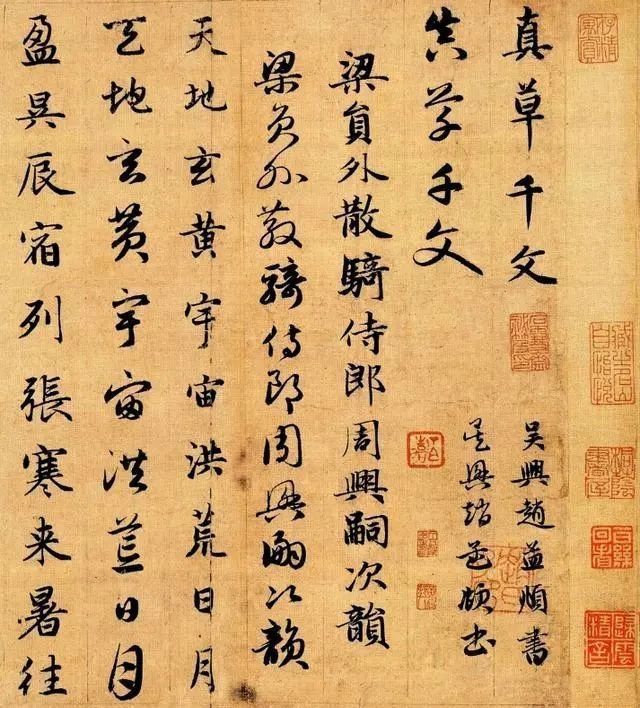 真草千文
真草千文
吴興趙孟頫書
吴興趙孟頫書
梁員外散騎侍郎周興嗣次韻
梁員外散騎侍郎周興嗣次韻
天地玄黄宇宙洪荒日月
天地玄黄宇宙洪荒日月
盈昃辰宿列張寒来暑往